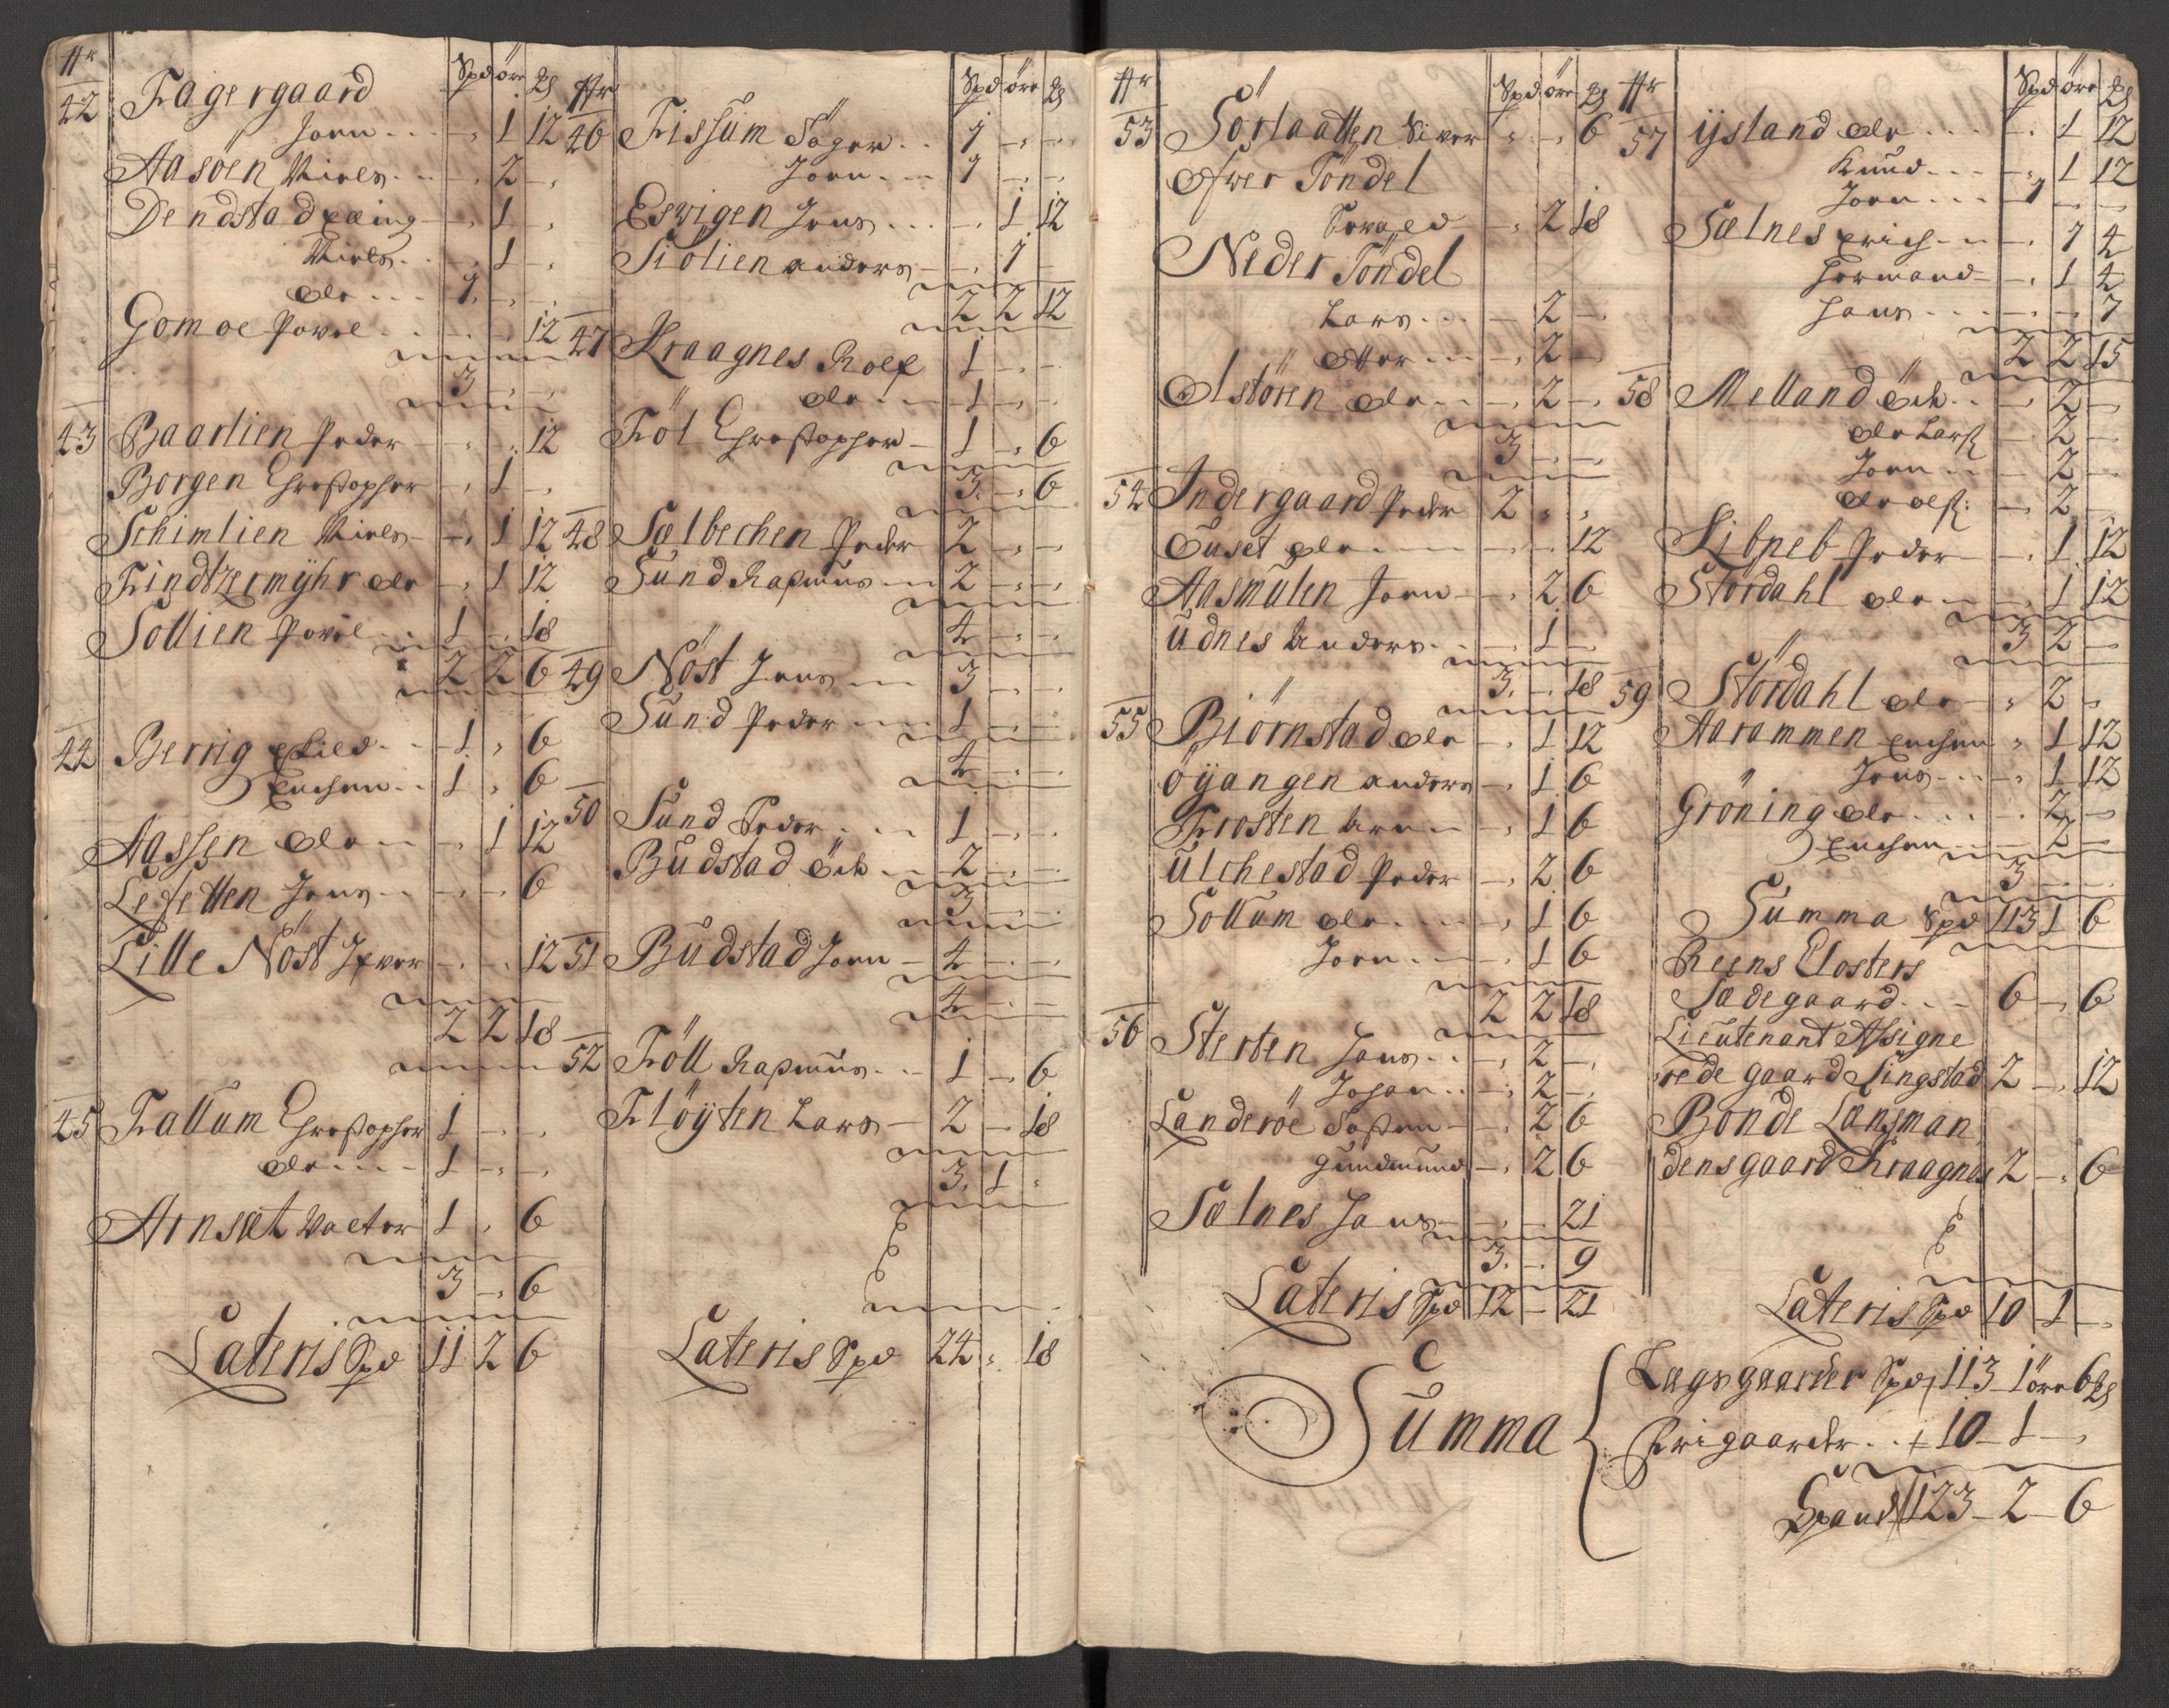 Nr Spd öre
42 Fagergaard
Joen - - - 1 12
Aasöen Niels - - - 2 -
Dendstad Erling - 1 -
Niels - - - 1 -
Ole - - - 1 - -
Gomoe Povel - - - 12
3 - -
43 Baarlien Peder - - 12
Borgen Christopher - 1 -
Schimlien Niels - 1 12
Kindtzermyhr Ole - 1 12
Sollien Povel - - 1 - 18
2 2 6
44 Berrig - - 1 - 6
Euchen - - 1 - 6
Aassen Ole - - - 1 12
Lefsetten Jens - - - 6
Lille Nöst Iver - - - 12
2 2 18
45 Kallum Christopher 1 - -
Ole - - - 1 - -
Arnset 1 - 6
3 - 6
Lateris Spd 11 2 6
Nr Spd öre
46 Fissum - - 1 - -
Joen - - - 1 - -
Eswigen Jens - - - 1 12
Siölien Anders - - 1 -
2 2 12
47 Kraagnes Rolf 1 - -
Ole - - - 1 - -
Föl Christopher - 1 - 6
3 - 6
48 Sælbechen Peder 2 - -
Sund Rasmus - 2 - -
4 - -
49 Nöst Jens - - 3 - -
Sund Peder - - 1 - -
4 - -
50 Sund Peder - - - 1 - -
Budstad - - 2 - -
3 - -
51 Budstad Joen - 4 - -
4 - -
52 Föll Rasmus - - 1 - 6
Fløyten Lars - 2 - 18
3 1 -
Lateris Spd 24 - 18
Nr Spd öre
53 Sörlaatten Siver - - 6
Ofwer Töndel
- 2 18
Neder Töndel
Lars - - - 2 -
Otter - - - 2 -
Olstören Ole - - - 2 -
3 - -
54 Indergaard Peder 2 - -
Ouset Ole - - - - 12
Aasmulen Joen - - 2 6
Udnes Anders - - 1 -
3 - 18
55 Biörnstad Ole - 1 12
Öyangen Anders - 1 6
Krosten Arn - - 1 6
Ulchestad Peder - 2 6
Sollum Ole - - - 1 6
Joen - - - 1 6
2 2 18
56 Sterten Jens - - - 2 -
Johan - - - 2 -
Landeröe - 2 6
Gundmund - 2 6
Sælnes Hans - - - 21
3 - 9
Lateris Spd 12 - 21
Nr Spd öre
57 ijsland Ole - - - - 1 12
Knud - - - 1 12
Joen - - - 1 - -
Sælnes Erich - - - 1 4
Hermand - - 1 4
Hans - - - - - 7
2 2 15
58 Melland - - 2 -
Ole Larss - 2 -
Joen - - - 2 -
Ole Olss: - 2 -
Peder - - 1 12
Stordahl Ole - - 1 12
3 2 -
59 Stördahl Ole - - 2 -
Aarammen Euchen - 1 12
Jens - - - 1 12
Gröning Ole - - - - 2 -
Euchen - - - 2 -
3 - -
Summa Spd 113 1 6
Reens Closters
Sædegaard - - - 6 - 6
Lieutenant Assigne
rede gaard Singstad 2 - 12
Bonde Lansman
densgaard Kraagnes 2 - 6
Lateris Spd 10 1 -
Summa
Lægsgaarder Spd 113 - 1 öre 6
Frigaarder - - 10 - 1 -
Spand 123 - 2 - 6